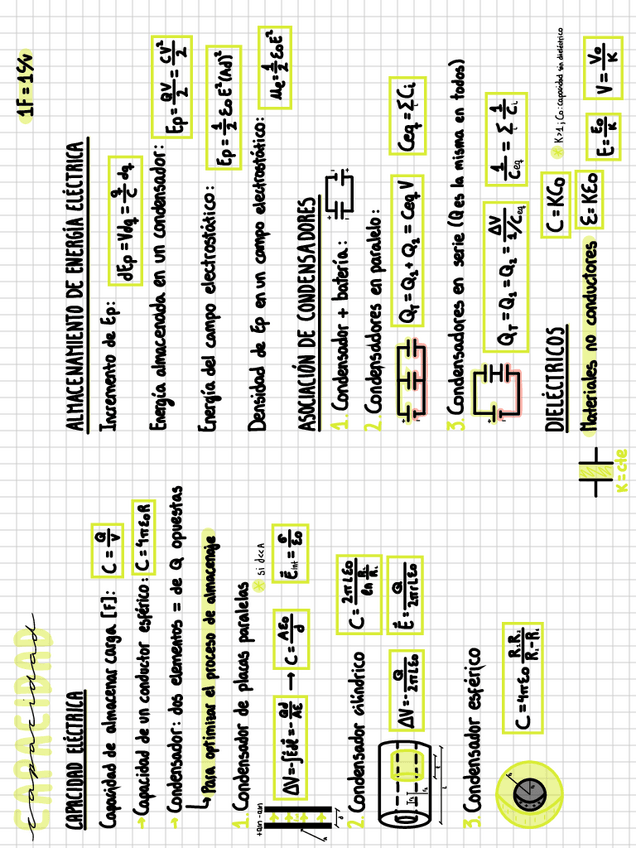 CAPACIDAD
capacidad
CAPACIDAD ELÉCTRICA
Capacidad de almacenar carga [F]: C = Q/V
→ Capacidad de un conductor esférico: C = 4πε₀R
→ Condensador: dos elementos = de Q opuestas
↳ Para optimizar el proceso de almacenaje
1. Condensador de placas paralelas
* si d<<A
ΔV = -∫Edℓ = -Qd/Aε → C = Aε₀/d
E⃗int = σ/ε₀
2. Condensador cilíndrico
C = 2πLε₀/ln
ΔV = -Q/2πLε₀
E⃗ = Q/2πrLε₀
3. Condensador esférico
C = 4πε₀
1F = 1C/V
ALMACENAMIENTO DE ENERGÍA ELÉCTRICA
Incremento de Ep: dEp = Vdq = q/C dq
Energía almacenada en un condensador: Ep = QV/2 = CV²/2
Energía del campo electrostático: Ep = 1/2 ε₀ E² (Ad)
Densidad de Ep en un campo electrostático: μe = 1/2 ε₀E²
ASOCIACIÓN DE CONDENSADORES
1. Condensador + batería:
2. Condensadores en paralelo:
QT = Q1 + Q2 = Ceq V
Ceq = ΣCi
3. Condensadores en serie (Q es la misma en todos)
QT = Q1 = Q2 = ΔV/1/Ceq
1/Ceq = Σ 1/Ci
DIELÉCTRICOS
Materiales no conductores
K = cte
C = KC₀
* K>1; C₀: capacidad sin dieléctrico
ε = Kε₀
E = E₀/K
V = V₀/K